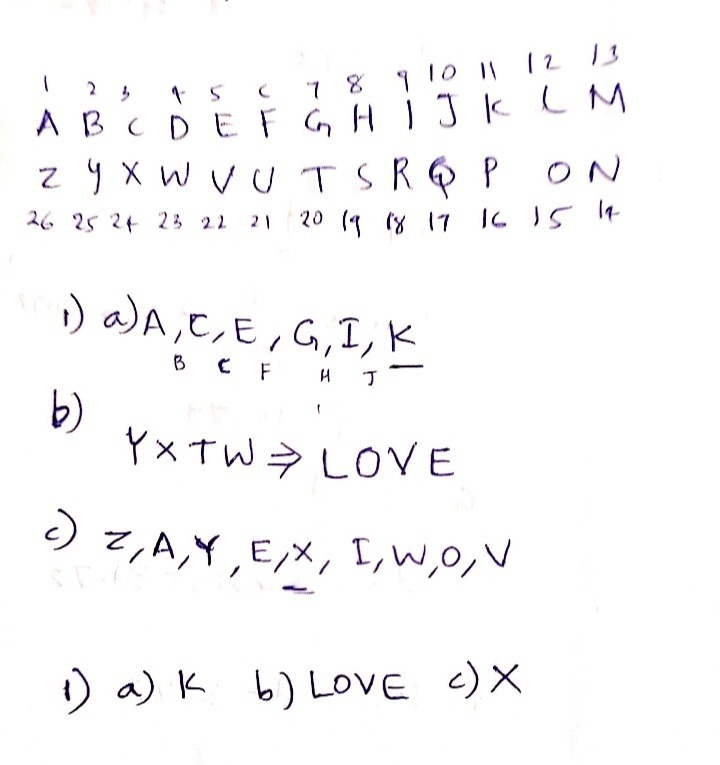 1 2 3 4 5 6 7 8 9 10 11 12 13
A B C D E F G H I J K L M
Z Y X W V U T S R Q P O N
26 25 24 23 22 21 20 19 18 17 16 15 14
1) a) A, C, E, G, I, K
B C F H J
b)
YXTW ⇒ LOVE
c) Z, A, Y, E, X, I, W, O, V
1) a) K b) LOVE c) X